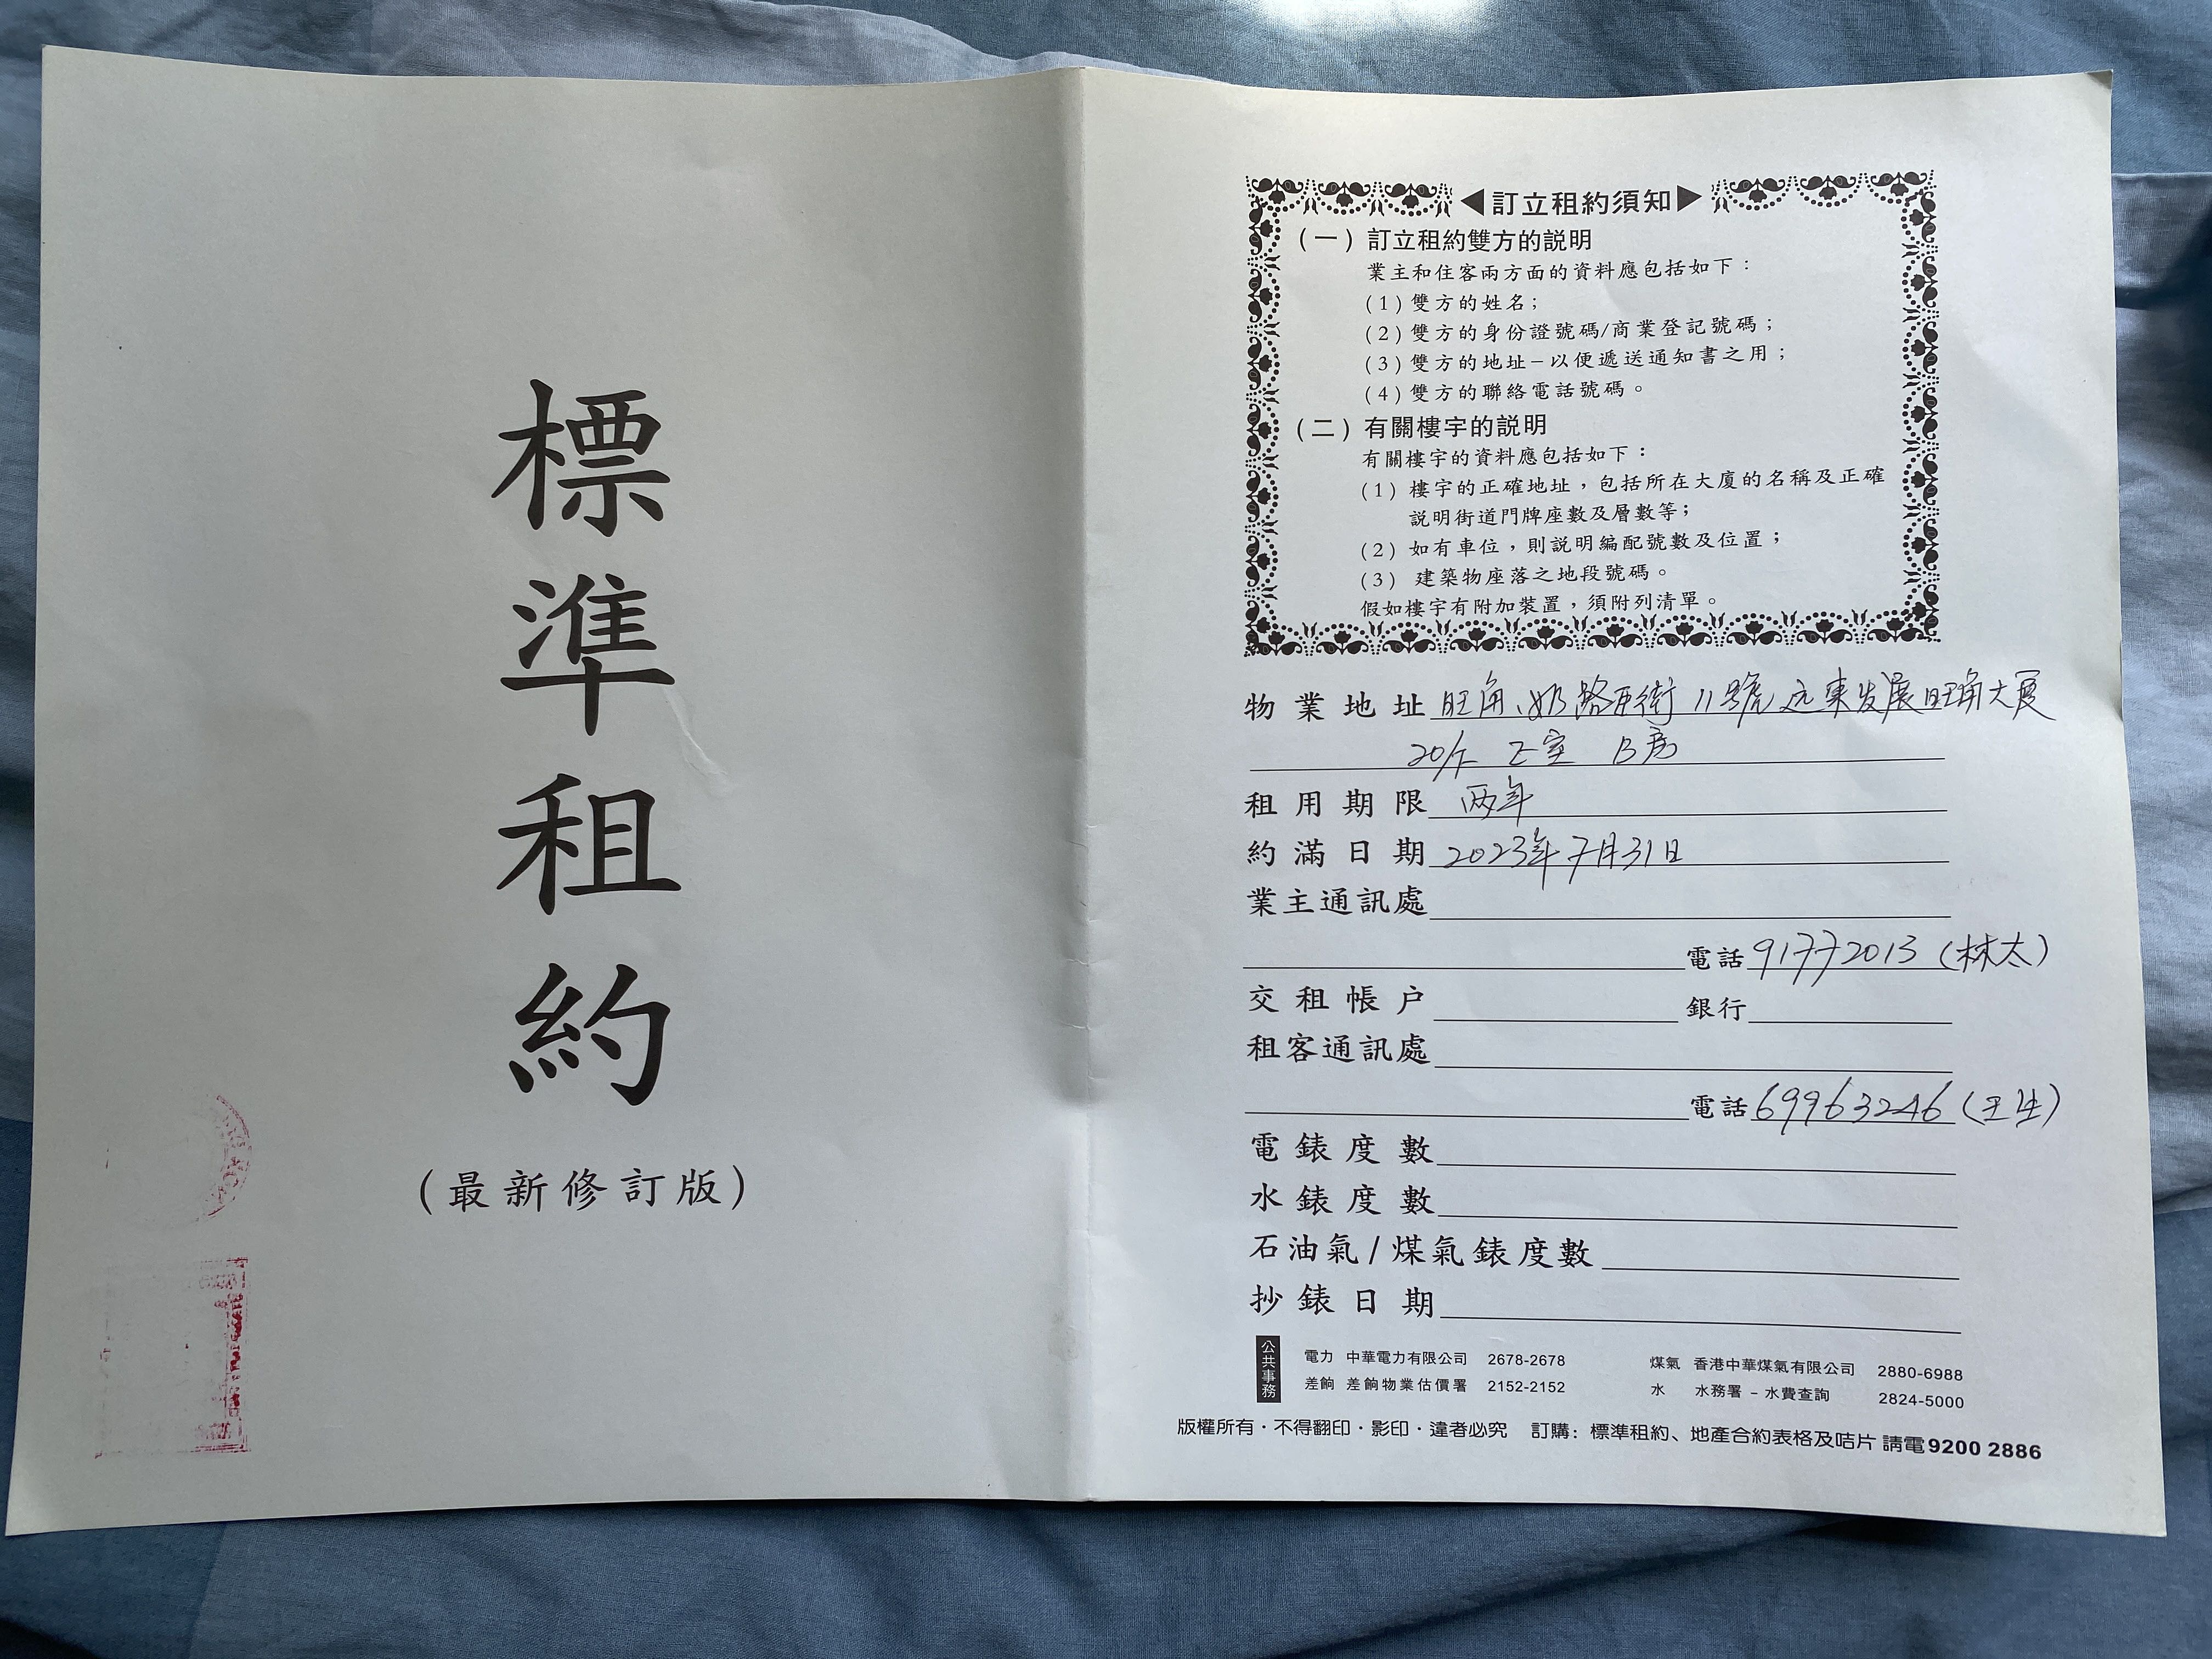 標
準
租
約
(最新修訂版)
◀訂立租約須知▶
(一) 訂立租約雙方的説明
業主和住客兩方面的資料應包括如下：
(1) 雙方的姓名；
(2) 雙方的身份證號碼/商業登記號碼；
(3) 雙方的地址－以便遞送通知書之用；
(4) 雙方的聯絡電話號碼。
(二) 有關樓宇的説明
有關樓宇的資料應包括如下：
(1) 樓宇的正確地址，包括所在大廈的名稱及正確
説明街道門牌座數及層數等；
(2) 如有車位，則説明編配號數及位置；
(3) 建築物座落之地段號碼。
假如樓宇有附加裝置，須附列清單。
物業地址 旺角、奶路臣街 11號 远東发展旺角大厦
20/F Z室 B房
租用期限 两年
約滿日期 2023年7月31日
業主通訊處
電話 91772013 (林太)
交租帳户 銀行
租客通訊處
電話 69963246 (王生)
電錶度數
水錶度數
石油氣/煤氣錶度數
抄錶日期
公共事務
電力 中華電力有限公司 2678-2678 煤氣 香港中華煤氣有限公司 2880-6988
差餉 差餉物業估價署 2152-2152 水 水務署－水費查詢 2824-5000
版權所有・不得翻印・影印・違者必究 訂購：標準租約、地產合約表格及咭片 請電9200 2886